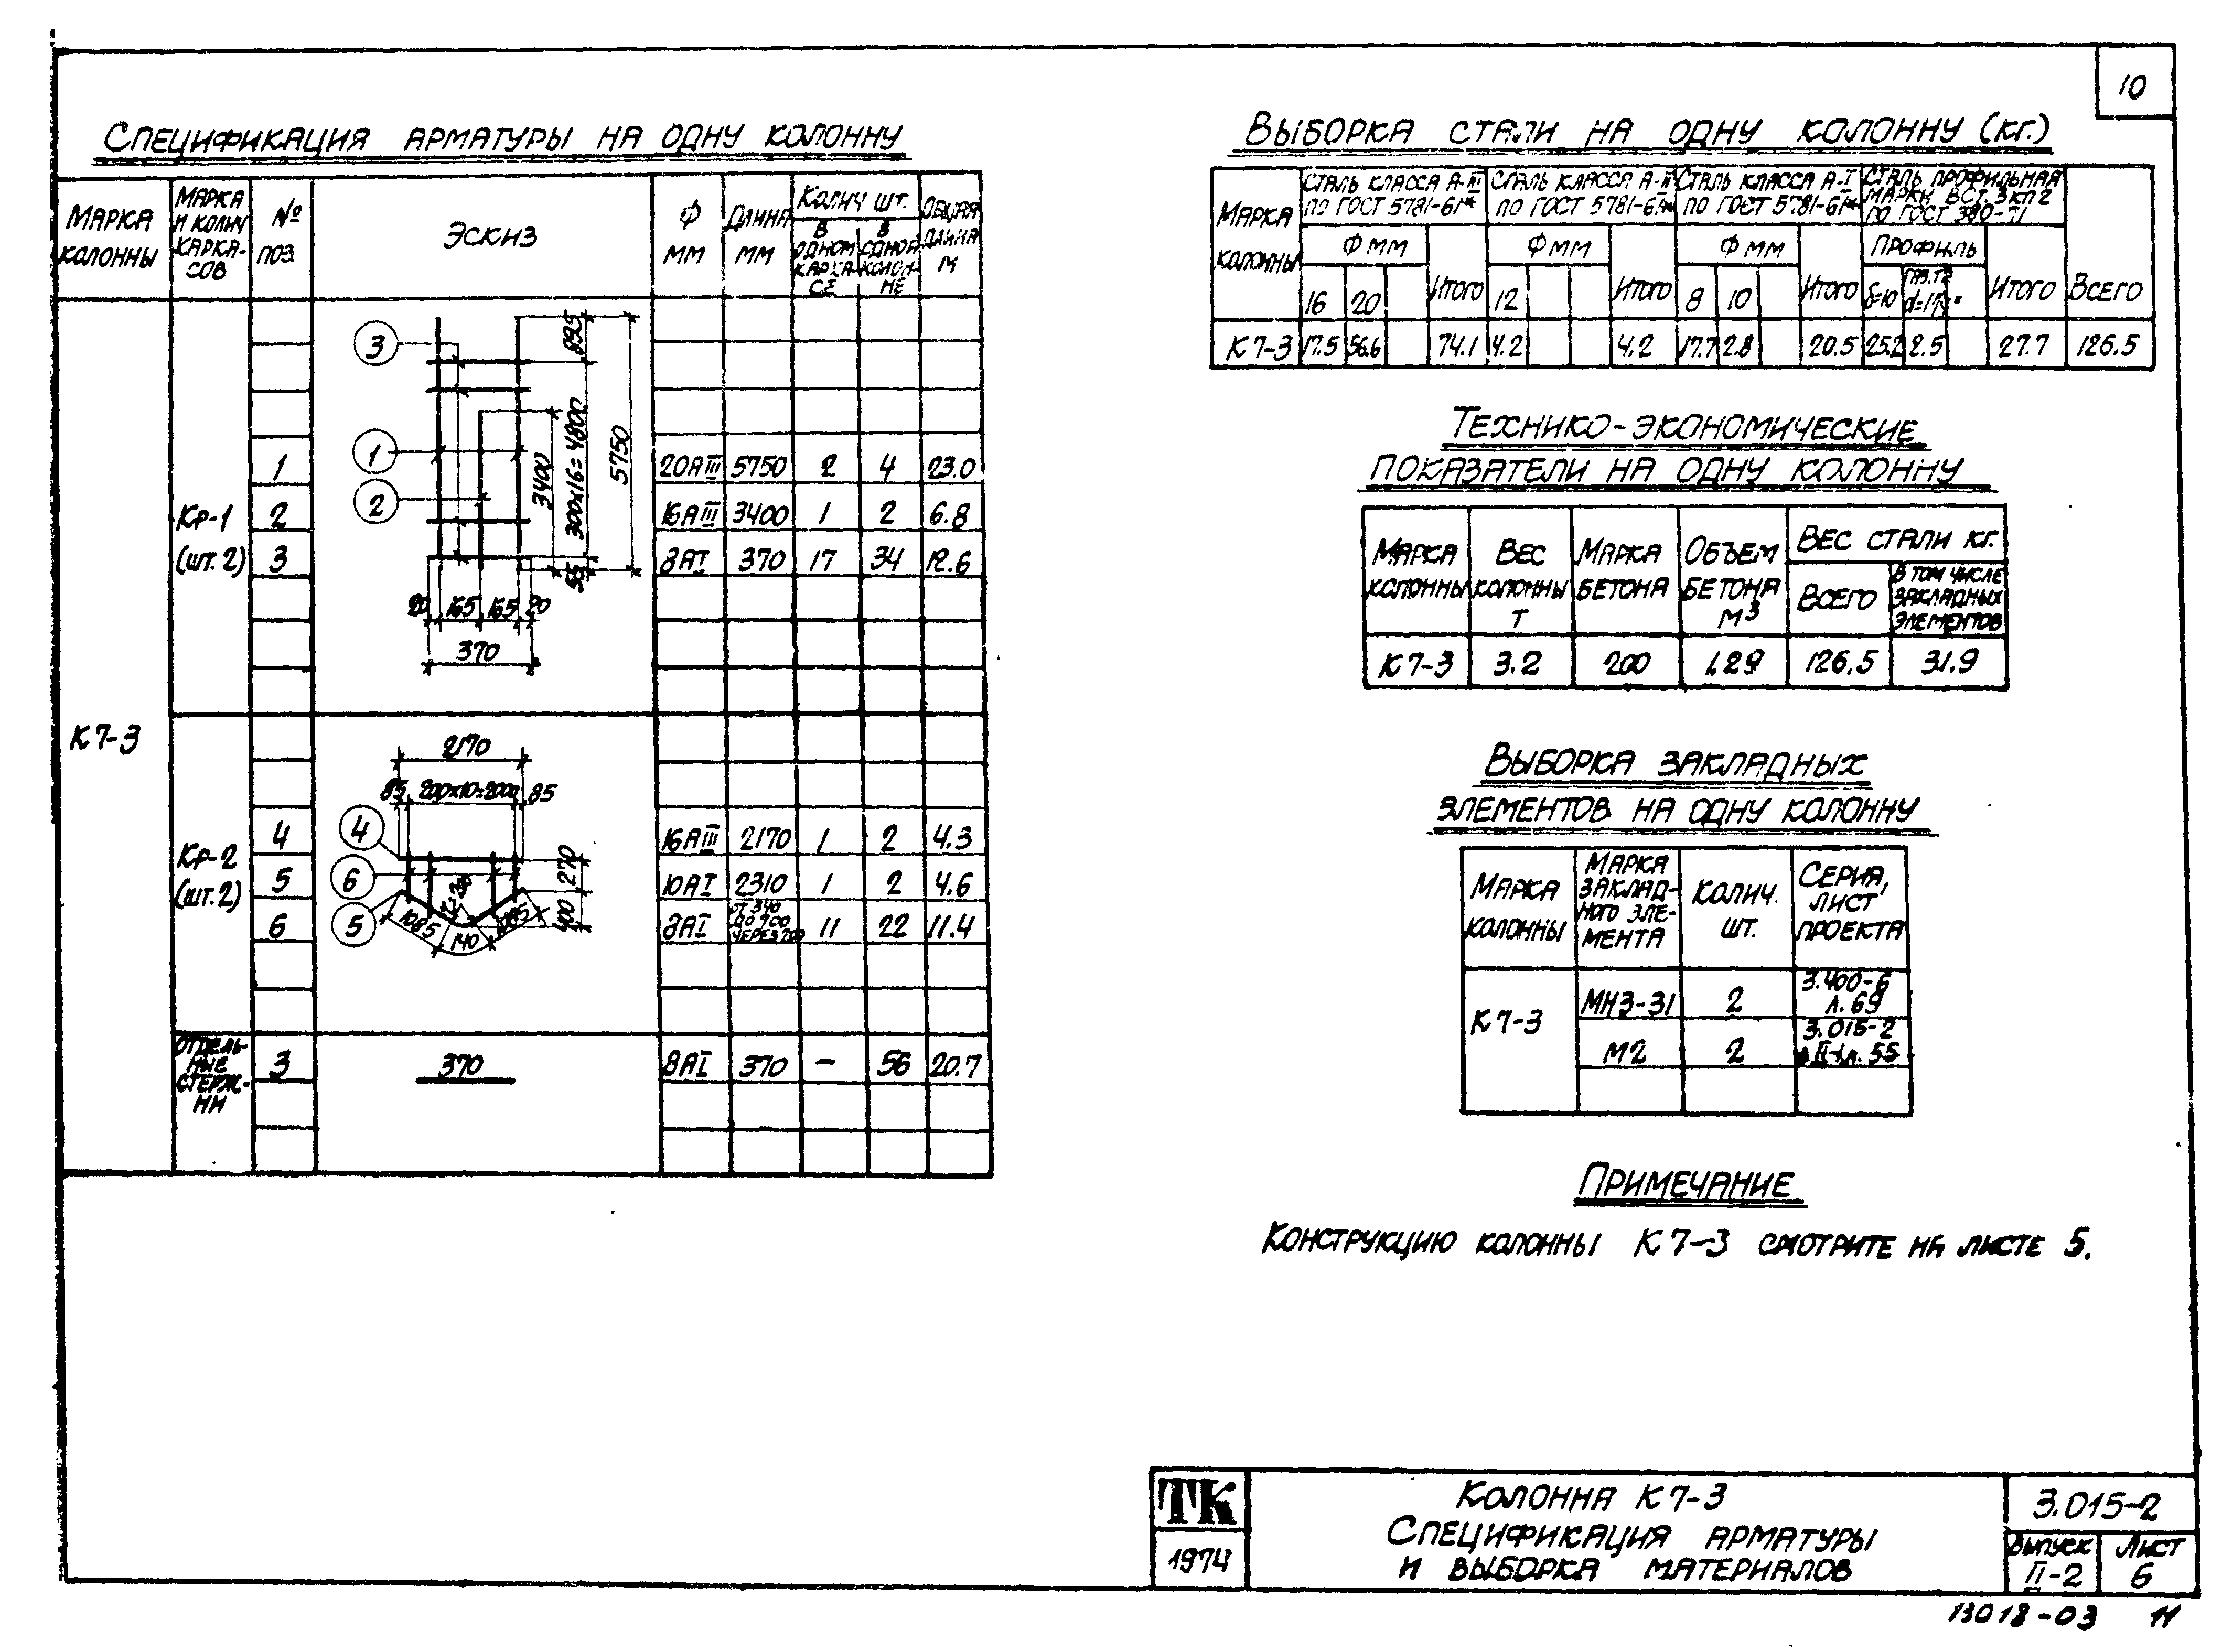 10
Спецификация арматуры на одну колонну
Марка колонны
Марка и колич каркасов
№ поз.
Эскиз
Ф мм
Длина мм
Колич шт.
в одном каркасе
в одной колонне
Общая длина м
К7-3
Кр-1 (шт. 2)
3
1
2
895
300х16=4800
3400
5750
55
20 165 165 20
370
1 20АIII 5750 2 4 23.0
2 16АIII 3400 1 2 6.8
3 8АI 370 17 34 12.6
Кр-2 (шт. 2)
2170
85 200х10=2000 85
4
6
5
270
400
1085 140 1085
4 16АIII 2170 1 2 4.3
5 10АI 2310 1 2 4.6
6 8АI от 340 до 700 через 11 22 11.4
Отдельные стержни
3 370 8АI 370 – 56 20.7
Выборка стали на одну колонну (кг.)
Марка колонны
Сталь класса А-III по ГОСТ 5781-61*
Сталь класса А-II по ГОСТ 5781-61*
Сталь класса А-I по ГОСТ 5781-61*
Сталь профильная марки ВСт. 3кп2 по ГОСТ 380-71
Ф мм Ф мм Ф мм Профиль
16 20 Итого 12 Итого 8 10 Итого δ=10 Газ.тр Итого Всего
К7-3 17.5 56.6 74.1 4.2 4.2 17.7 2.8 20.5 25.2 2.5 27.7 126.5
Технико-экономические
показатели на одну колонну
Марка колонны
Вес колонны т
Марка бетона
Объем бетона м³
Вес стали кг.
Всего
в том числе закладных элементов
К7-3 3.2 200 1.29 126.5 31.9
Выборка закладных
элементов на одну колонну
Марка колонны
Марка закладного элемента
Колич. шт.
Серия, лист проекта
К7-3
МН3-31 2 3.400-6 л. 69
М2 2 3.015-2 л. 55
Примечание
Конструкцию колонны К7-3 смотрите на листе 5.
ТК
1974
Колонна К7-3
Спецификация арматуры
и выборка материалов
3.015-2
Выпуск II-2
Лист 6
13018-03 11